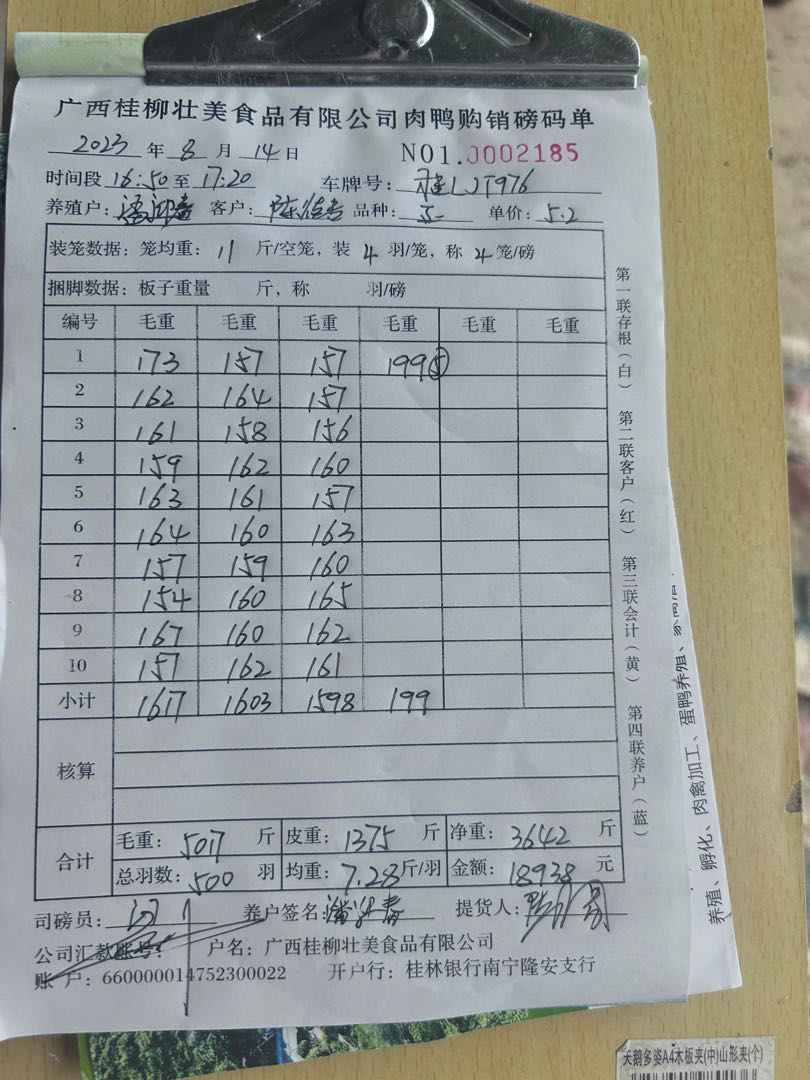 广西桂柳壮美食品有限公司肉鸭购销磅码单
2023 年 8 月 14 日 NO1.0002185
时间段 16:50 至 17:20 车牌号: 桂LJT976
养殖户: 客户: 品种: 单价: 5.2
装笼数据: 笼均重: 11 斤/空笼, 装 4 羽/笼, 称 4 笼/磅
捆脚数据: 板子重量 斤, 称 羽/磅
编号 毛重 毛重 毛重 毛重 毛重 毛重
1 173 157 157 199⑤
2 162 164 157
3 161 158 156
4 159 162 160
5 163 161 157
6 164 160 163
7 157 159 160
8 154 160 165
9 167 160 162
10 157 162 161
小计 1617 1603 1598 199
核算
合计
毛重: 5017 斤 皮重: 1375 斤 净重: 3642 斤
总羽数: 500 羽 均重: 7.28 斤/羽 金额: 18938 元
司磅员: 养户签名: 提货人:
公司汇款账号: 户名: 广西桂柳壮美食品有限公司
账 户: 660000014752300022 开户行: 桂林银行南宁隆安支行
第一联存根(白) 第二联客户(红) 第三联会计(黄) 第四联养户(蓝)
养殖、孵化、肉禽加工、蛋鸭养殖、
天鹅多姿A4木板夹(中)山形夹(个)